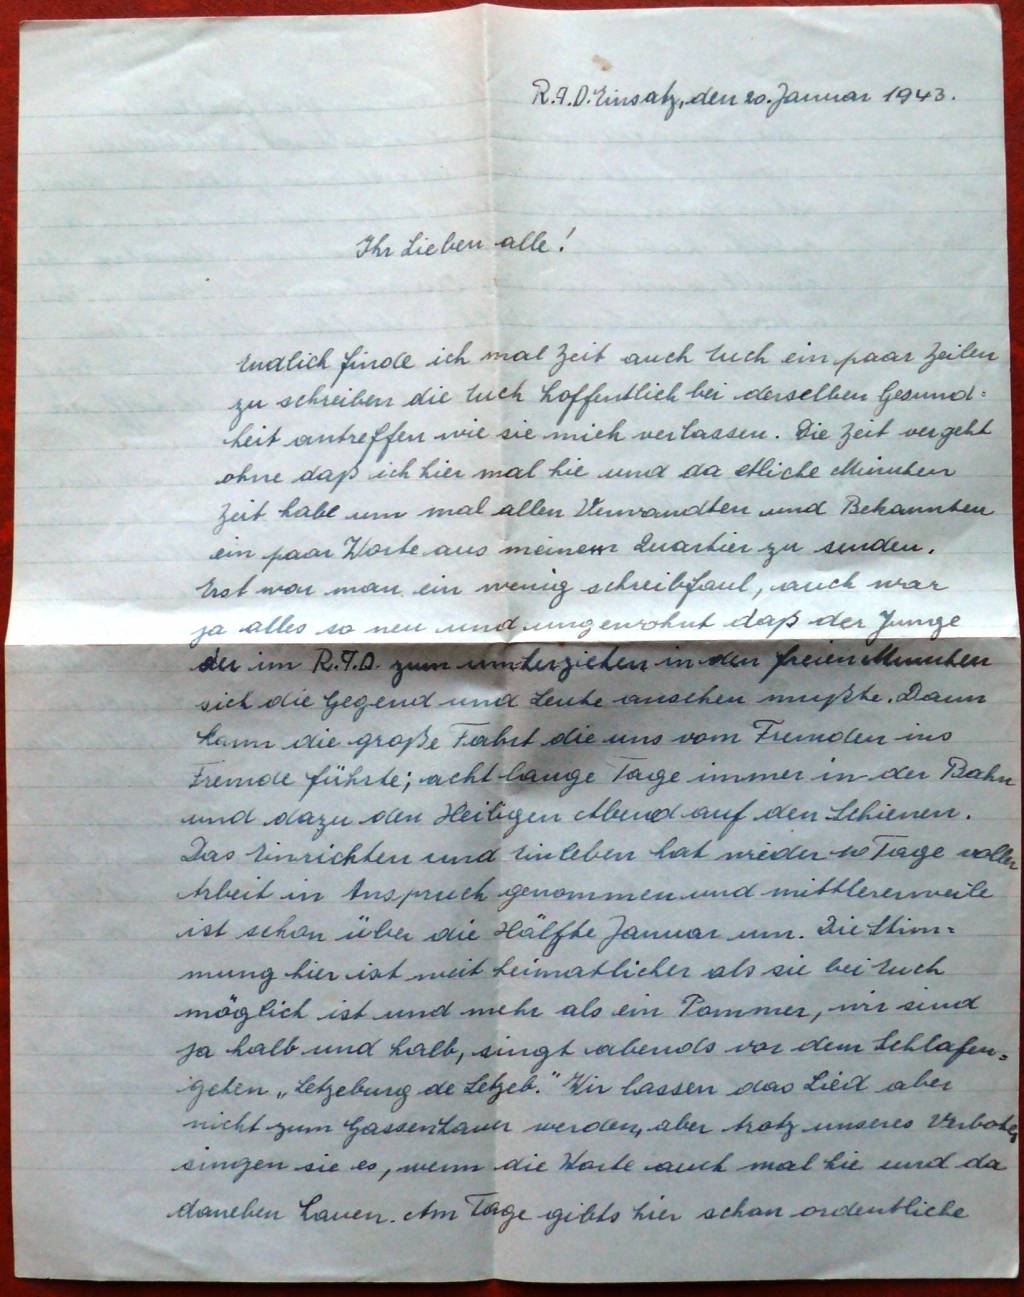 R.A.D. Einsatz, den 20. Januar 1943.
Ihr Lieben alle!
Endlich finde ich mal Zeit auch Euch ein paar Zeilen
zu schreiben die Euch hoffentlich bei derselben Gesund=
heit antreffen wie sie mich verlassen. Die Zeit vergeht
ohne daß ich hier mal hie und da etliche Minuten
Zeit habe um mal allen Verwandten und Bekannten
ein paar Worte aus meinem Quartier zu senden.
Erst war man ein wenig schreibfaul, auch war
ja alles so neu und ungewohnt daß der Junge
der im R.A.D. zum umherziehen in den freien Minuten
sich die Gegend und Leute ansehen mußte. Dann
kam die große Fahrt die uns vom Fremden ins
Fremde führte; acht lange Tage immer in der Bahn
und dazu den Heiligen Abend auf den Schienen.
Das Einrichten und Einleben hat wieder 10 Tage voller
Arbeit in Anspruch genommen und mittlererweile
ist schon über die Hälfte Januar um. Die Stim=
mung hier ist weit heimatlicher als sie bei Euch
möglich ist und mehr als ein Pommer, wir sind
ja halb und halb, singt abends vor dem Schlafen=
gehen „Letzeburg de Letzeb." Wir lassen das Lied aber
nicht zum Gassenhauer werden, aber trotz unseres Verbotes
singen sie es, wenn die Worte auch mal hie und da
daneben hauen. Am Tage gibts hier schon ordentliche